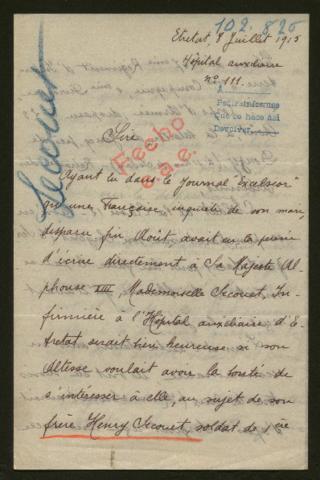 102.826
Etretat, 8 Juillet 1915
Hôpital auxiliaire
no. 111.
Secouet
Pedir informes
que se hace así
Devolver
Sire
Fecho
e.a.e.
Ayant lu dans le journal "Excelsior"
qu'une Française, inquiète de son mari,
disparu fin Août, avait eu la pensée
d'écrire directement à Sa Majesté Al-
phonse XIII, Mademoiselle Secouet, In-
firmière à l'Hôpital auxiliaire d'E-
tretat, serait bien heureuse si son
Altesse voulait avoir la bonté de
s'intéresser à elle, au sujet de son
frère Henry Secouet, soldat de 1ère